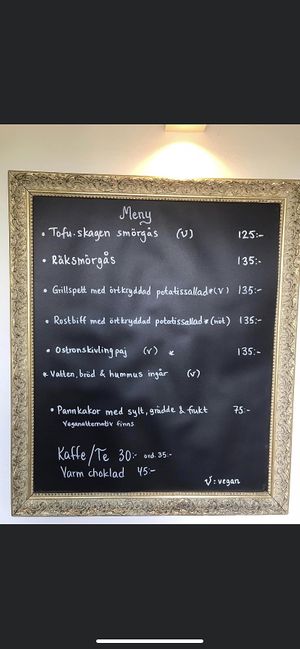 Meny
• Tofu.skagen smörgås (v) 125:-
• Räksmörgås 135:-
• Grillspett med örtkryddad potatissallad*(v) 135:-
• Rostbiff med örtkryddad potatissallad*(nöt) 135:-
• Ostronskivling paj (v) * 135:-
* Vatten, bröd & hummus ingår (v)
• Pannkakor med sylt, grädde & frukt 75:-
Veganalternativ finns
Kaffe/Te 30:- ord. 35:-
Varm choklad 45:-
V: vegan